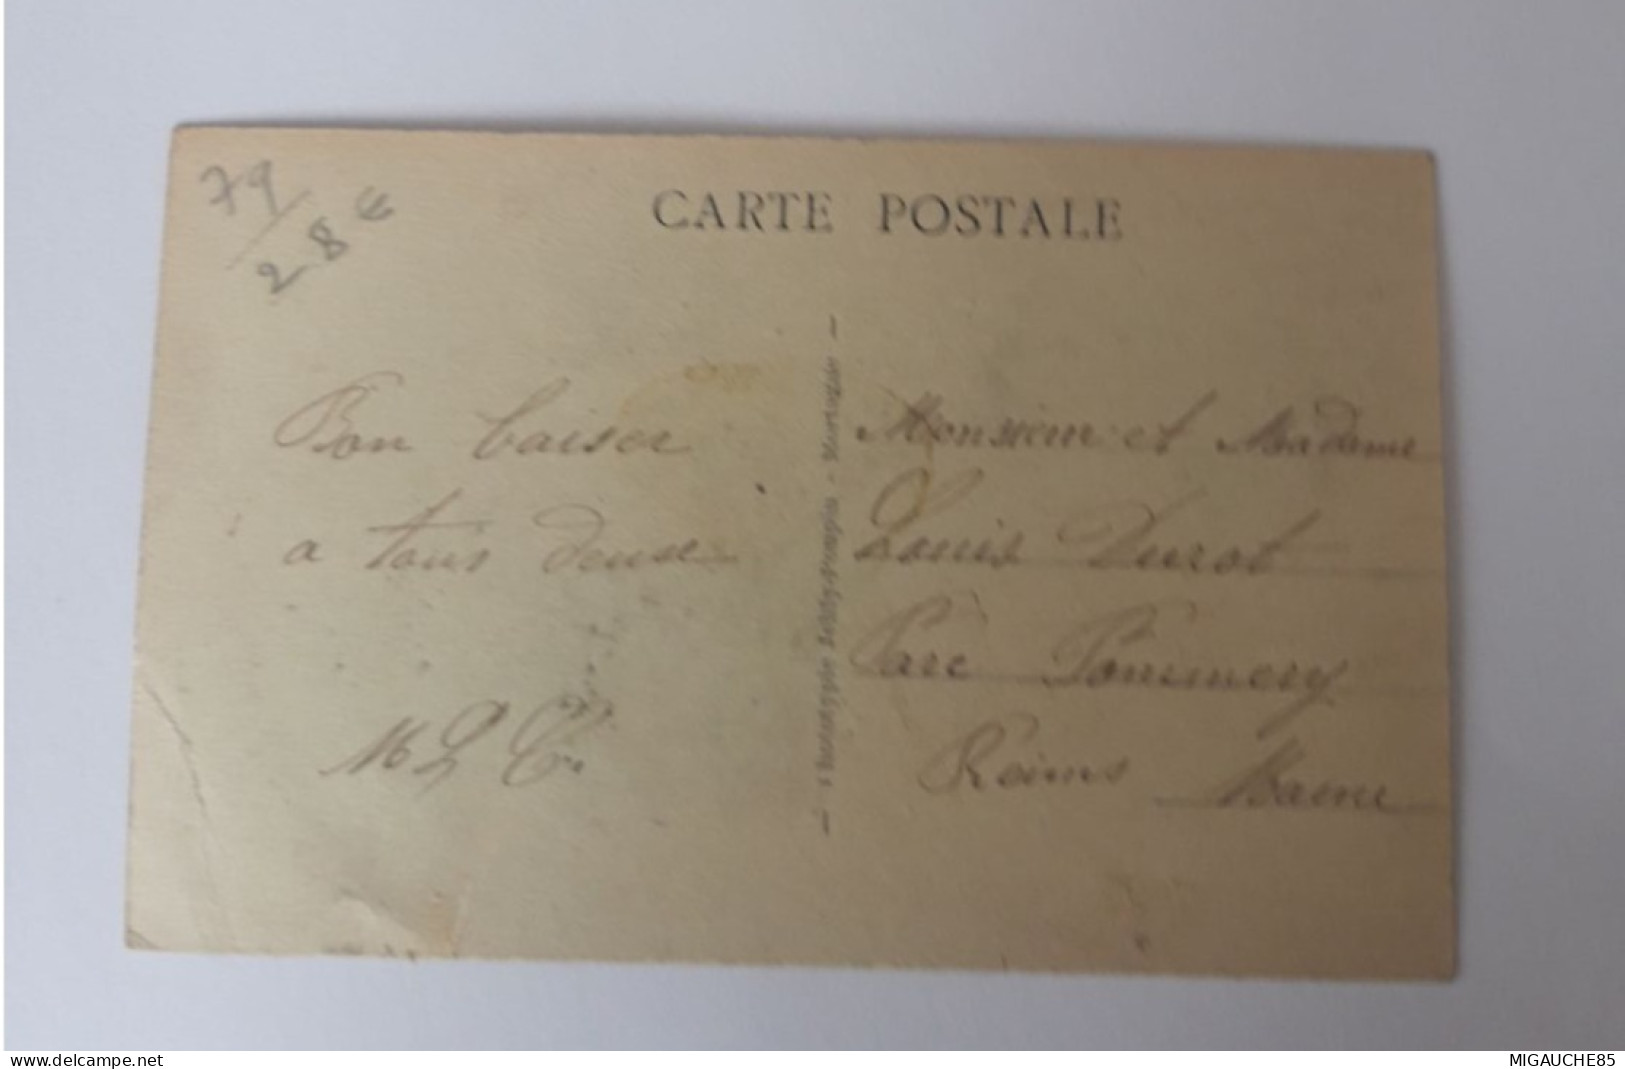 79
28 €
CARTE POSTALE
Bon baiser
a tous deux
Monsieur et Madame
Louis Durot
Parc Pommery
Reims Marne
delcampe.net
MIGAUCHE85